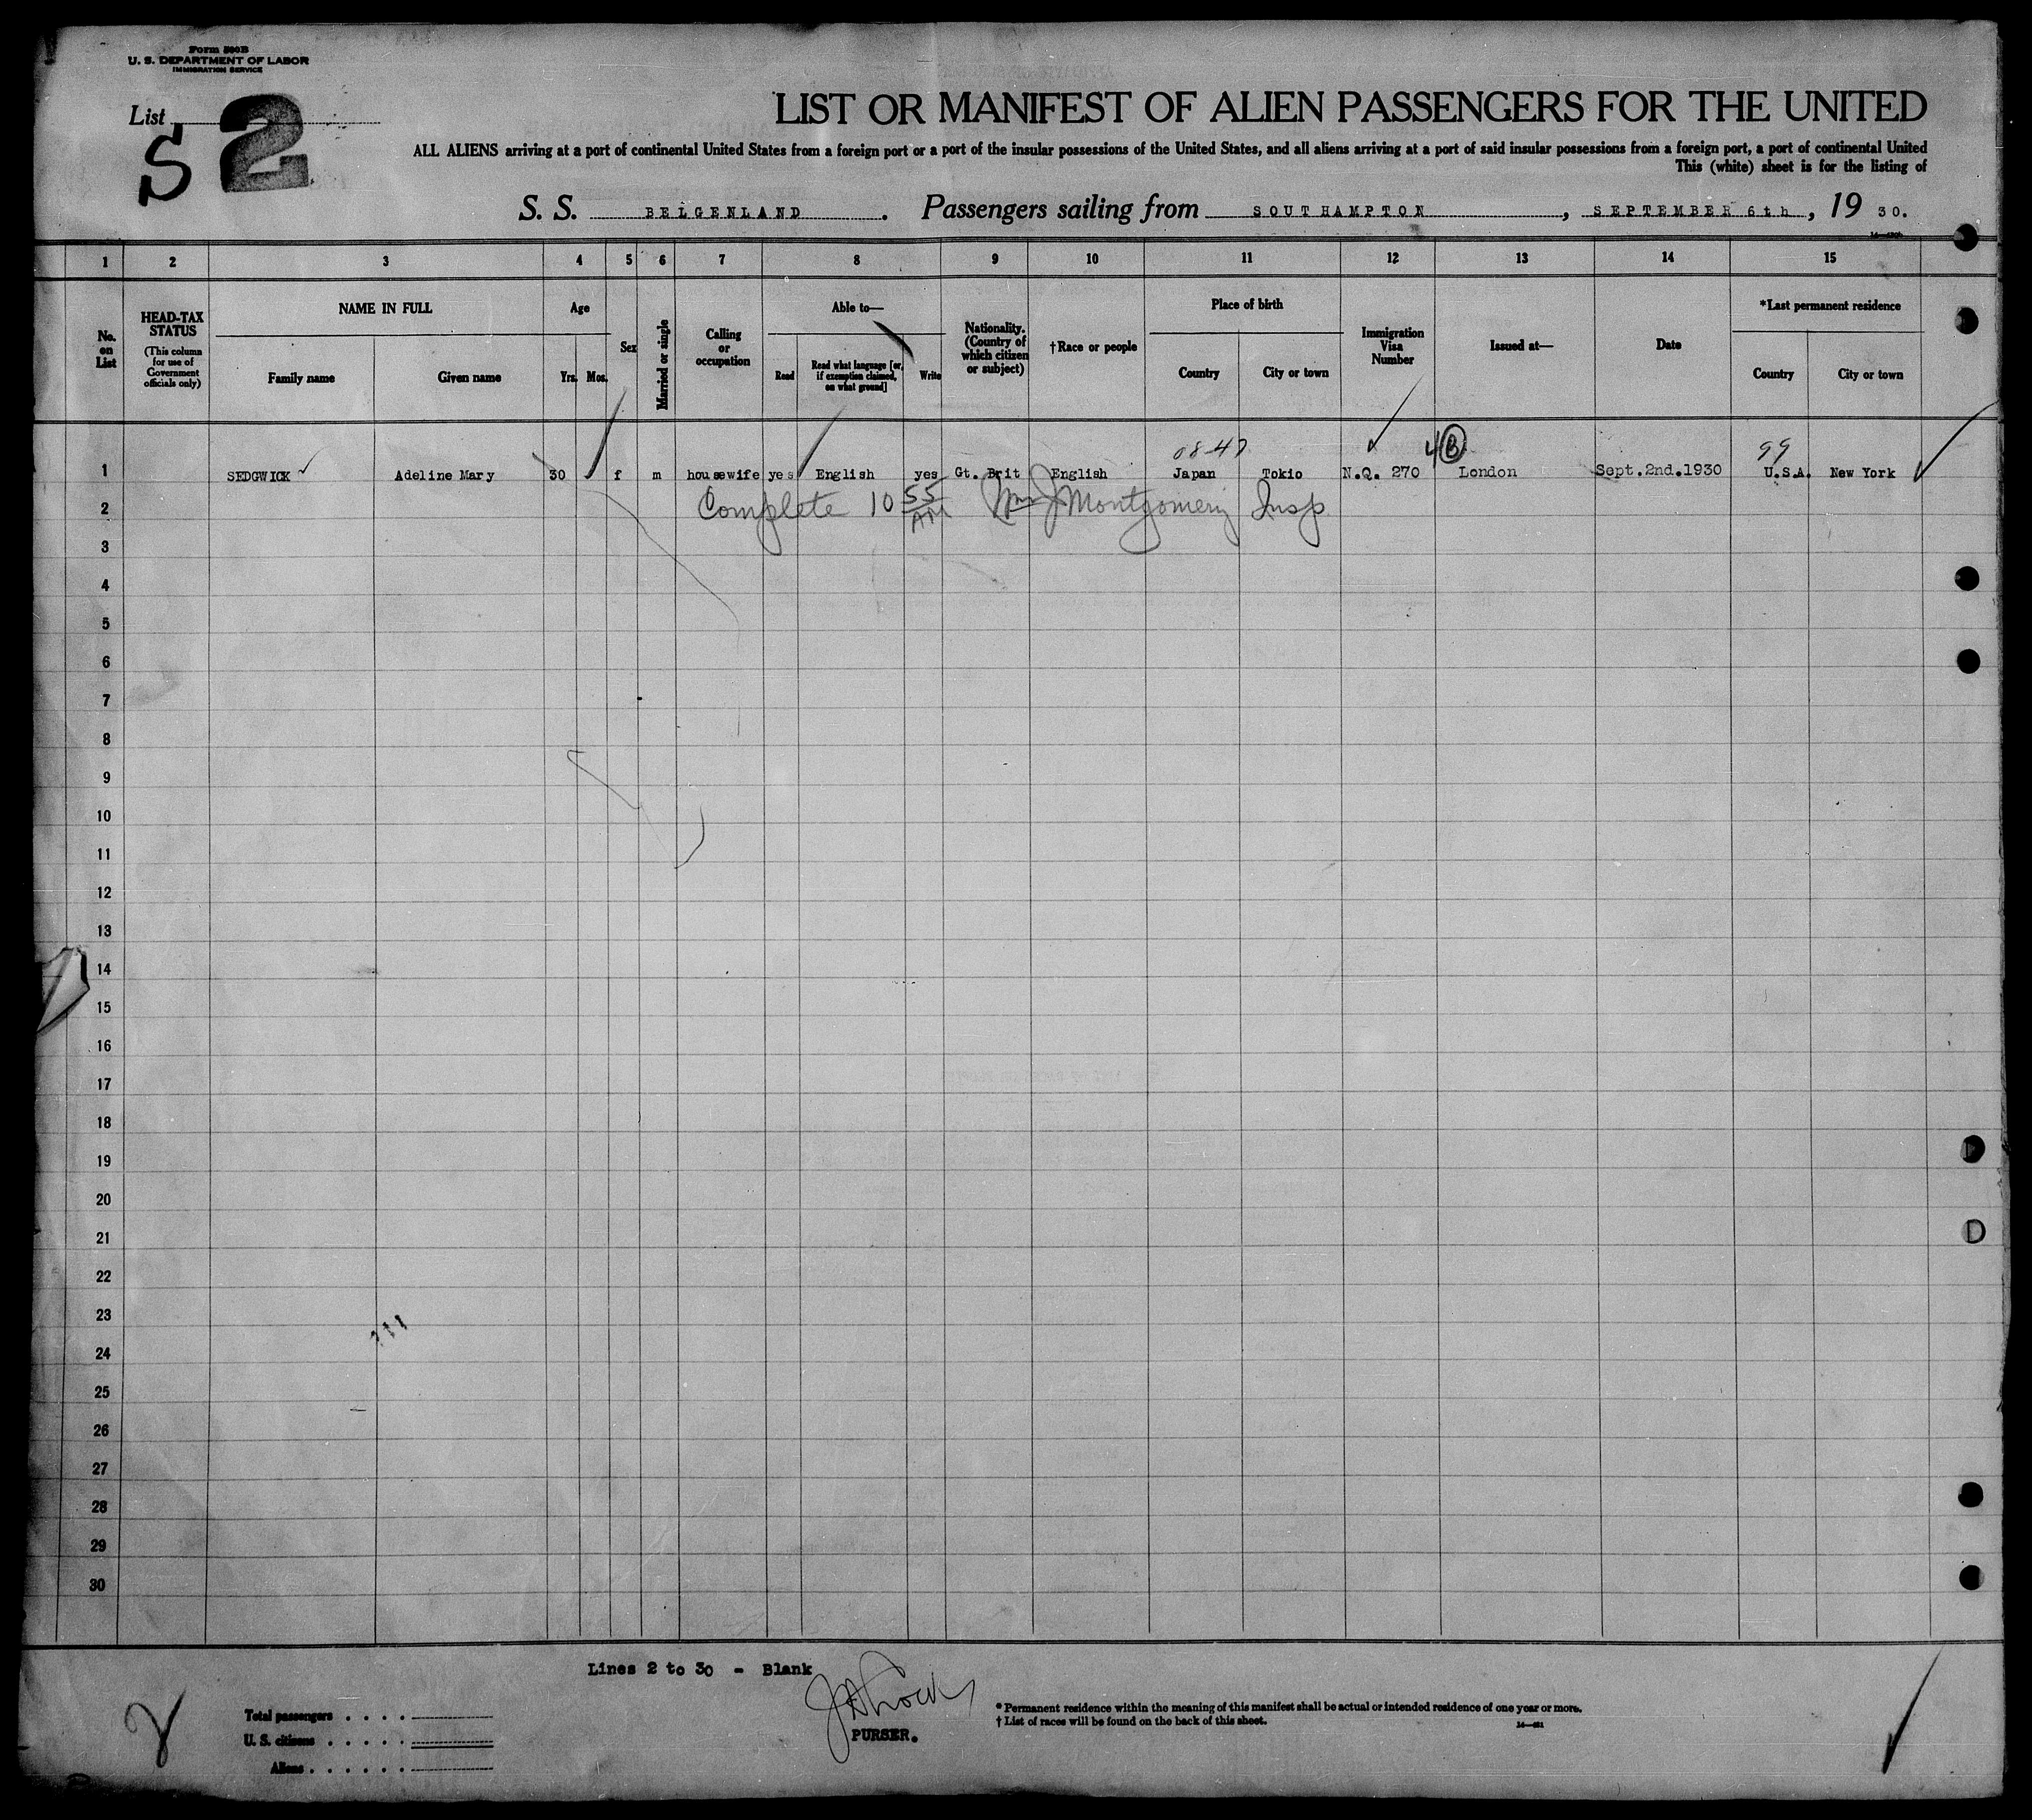 Form 500B
U. S. DEPARTMENT OF LABOR
IMMIGRATION SERVICE
List
S 2
LIST OR MANIFEST OF ALIEN PASSENGERS FOR THE UNITED
ALL ALIENS arriving at a port of continental United States from a foreign port or a port of the insular possessions of the United States, and all aliens arriving at a port of said insular possessions from a foreign port, a port of continental United
This (white) sheet is for the listing of
S. S. BELGENLAND. Passengers sailing from SOUTHAMPTON, SEPTEMBER 6th, 19 30.
1 2 3 4 5 6 7 8 9 10 11 12 13 14 15
No. on List
HEAD-TAX STATUS
(This column for use of Government officials only)
NAME IN FULL
Family name
Given name
Age
Yrs. Mos.
Sex
Married or single
Calling or occupation
Able to—
Read
Read what language [or, if exemption claimed, on what ground]
Write
Nationality. (Country of which citizen or subject)
†Race or people
Place of birth
Country
City or town
Immigration Visa Number
Issued at—
Date
*Last permanent residence
Country
City or town
08-47 4 B 99
1 SEDGWICK Adeline Mary 30 f m housewife yes English yes Gt. Brit English Japan Tokio N.Q. 270 London Sept.2nd.1930 U.S.A. New York
2 Complete 10 55 AM Wm J Montgomery Insp
3
4
5
6
7
8
9
10
11
12
13
14
15
16
17
18
19
20
21
22
23
24
25
26
27
28
29
30
Lines 2 to 30 - Blank
PURSER.
Total passengers . . . .
U. S. citizens . . . . .
Aliens . . . . . .
* Permanent residence within the meaning of this manifest shall be actual or intended residence of one year or more.
† List of races will be found on the back of this sheet.